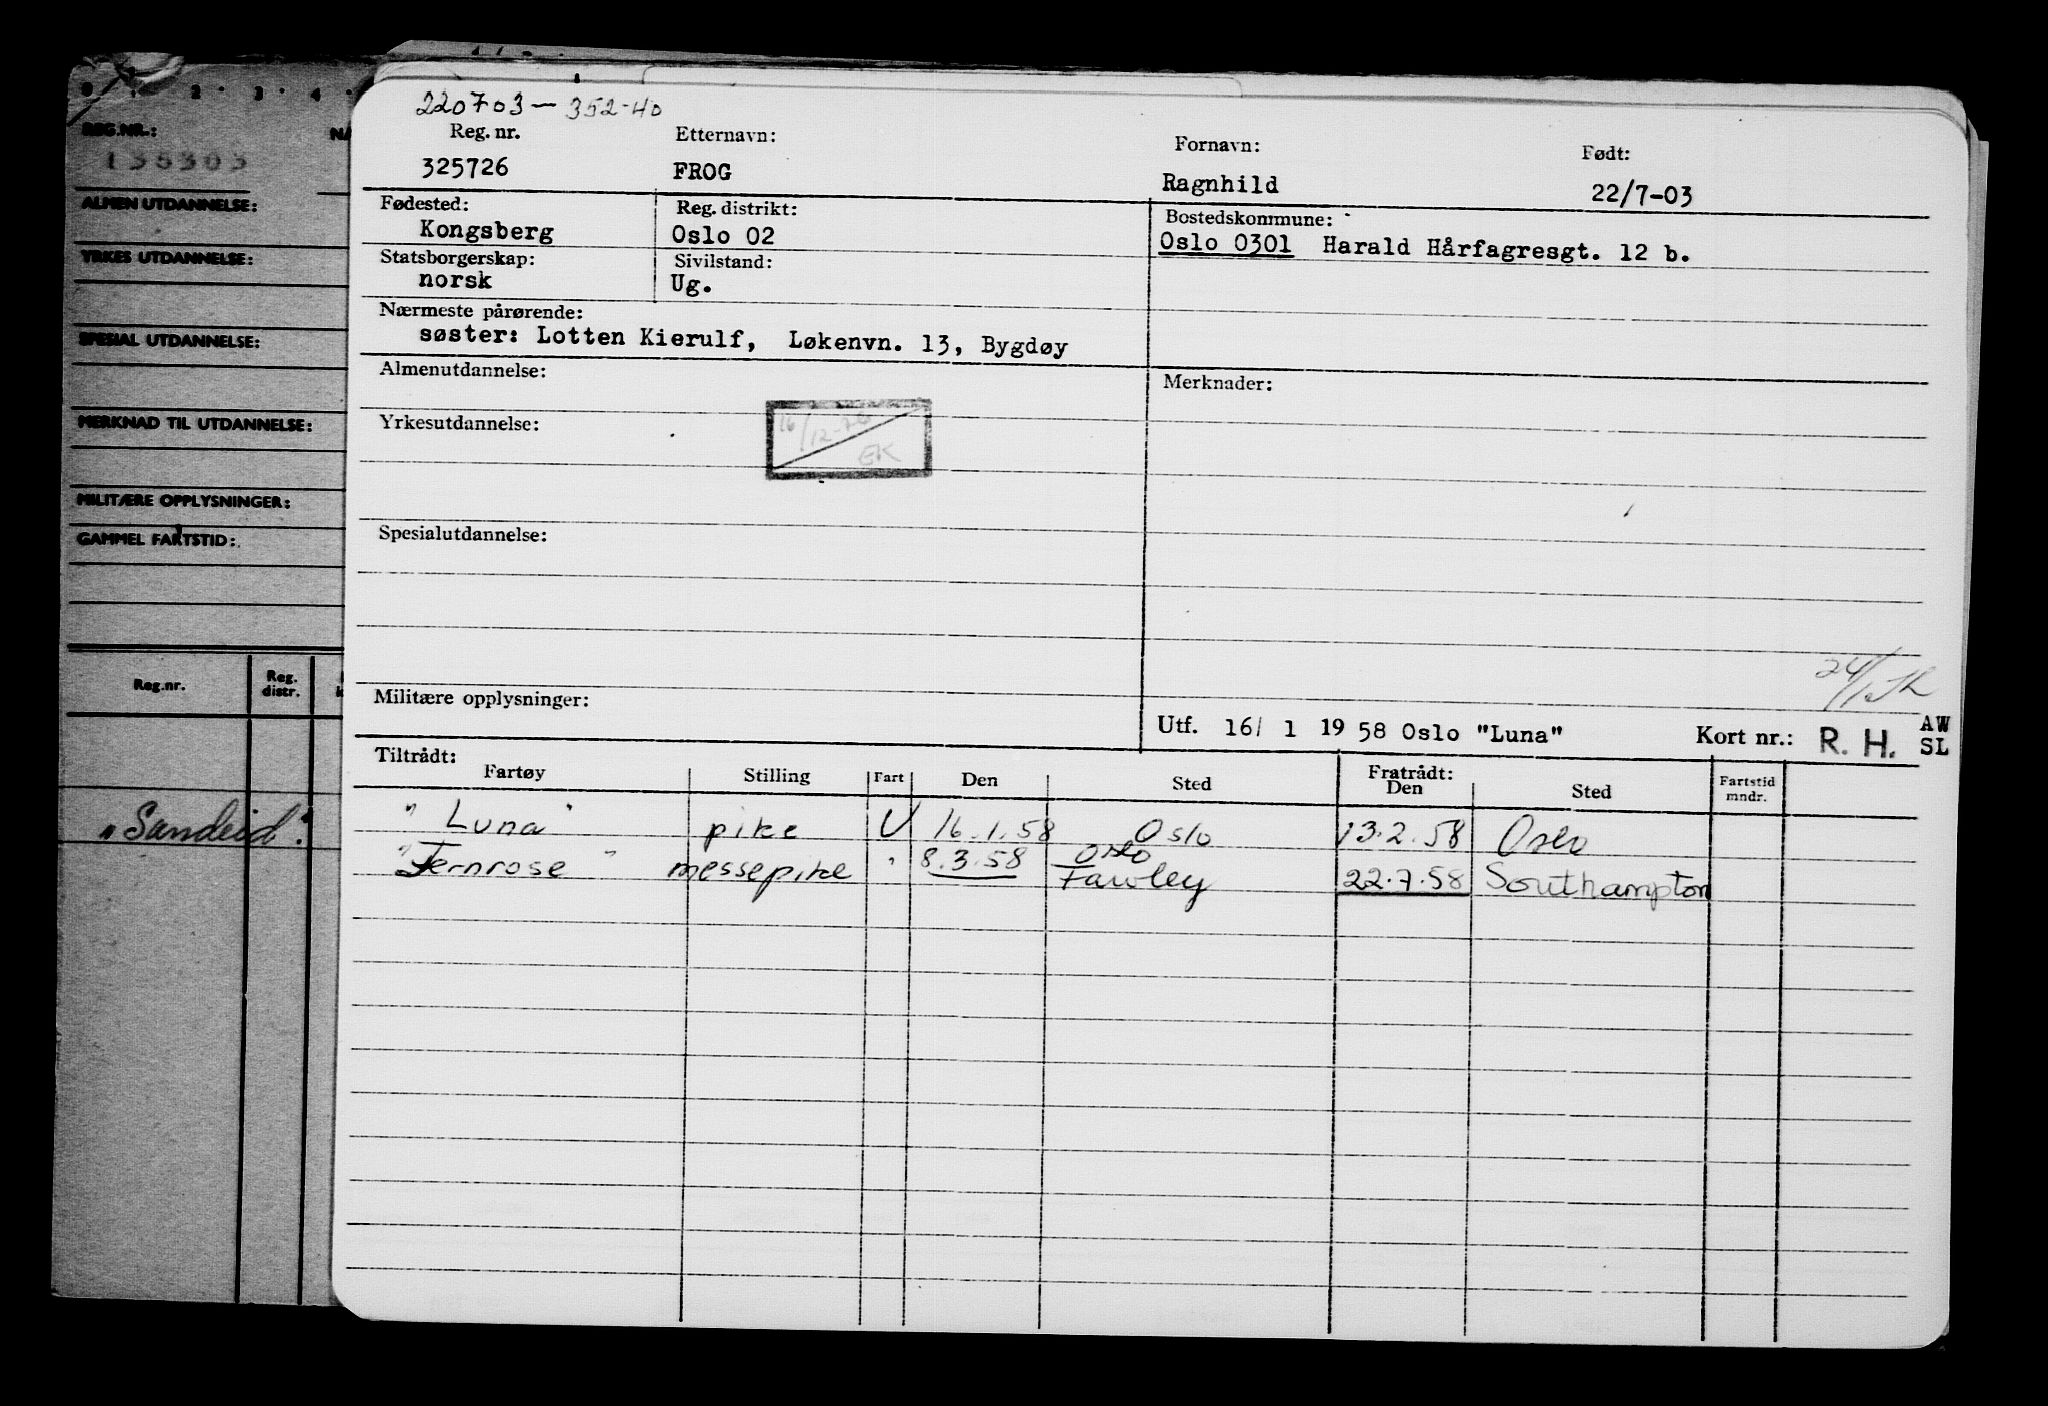 0 . 2 . 3 . 4
REG.NR.:
135303
ALMEN UTDANNELSE:
YRKES UTDANNELSE:
SPESIAL UTDANNELSE:
MERKNAD TIL UTDANNELSE:
MILITÆRE OPPLYSNINGER:
GAMMEL FARTSTID:
Reg.nr. Reg. distr.
"Sandeid".
220703 — 352-40
Reg. nr. Etternavn: Fornavn: Født:
325726 FROG Ragnhild 22/7-03
Fødested: Reg. distrikt: Bostedskommune:
Kongsberg Oslo 02 Oslo 0301 Harald Hårfagresgt. 12 b.
Statsborgerskap: Sivilstand:
norsk Ug.
Nærmeste pårørende:
søster: Lotten Kierulf, Løkenvn. 13, Bygdøy
Almenutdannelse: Merknader:
Yrkesutdannelse:
16/12-7
EK
Spesialutdannelse:
24/1
Militære opplysninger:
Utf. 16/ 1 19 58 Oslo "Luna" Kort nr.: R. H. AW
SL
Tiltrådt: Fratrådt:
Fartøy Stilling Fart Den Sted Den Sted Fartstid mndr.
"Luna" pike U 16.1.58 Oslo 13.2.58 Oslo
"Fernrose" messepike " 8.3.58 Oslo Fawley 22.7.58 Southampton